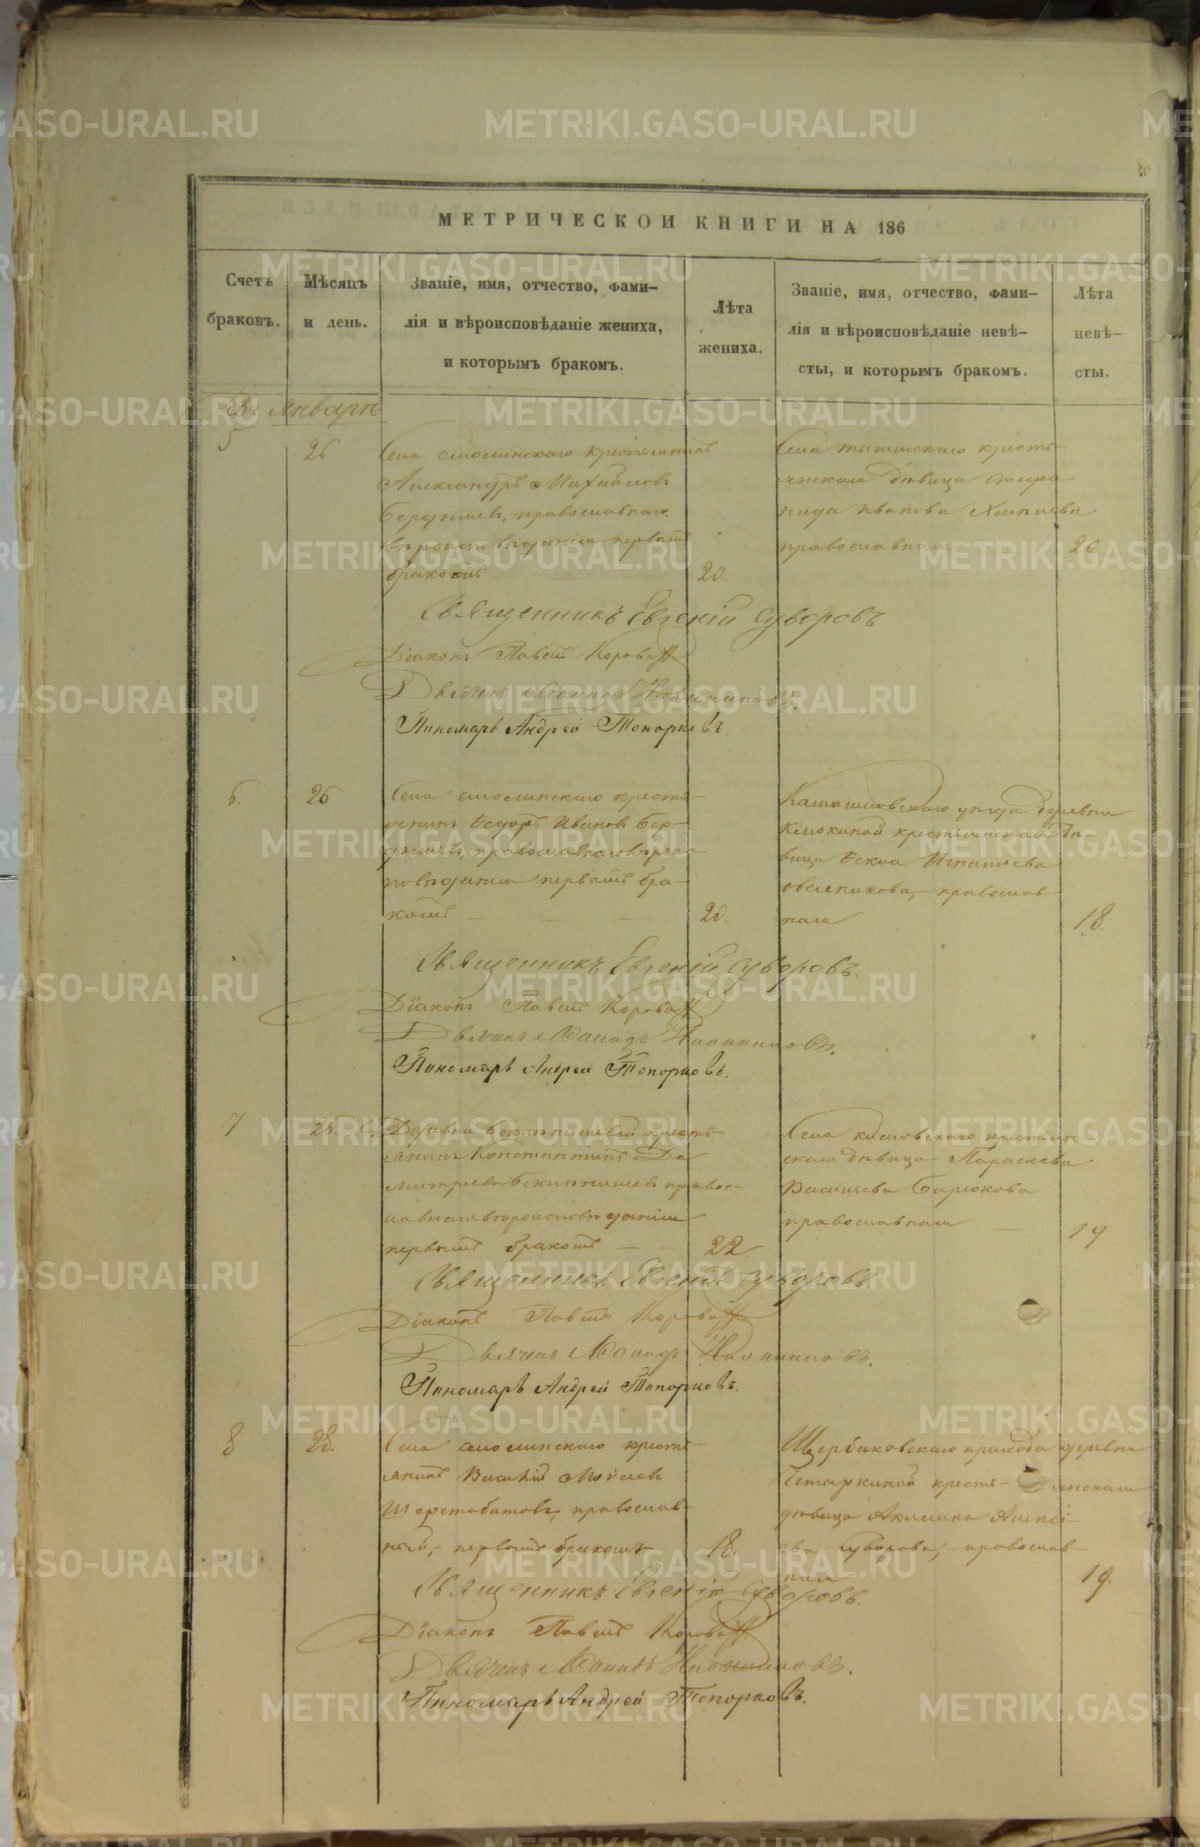 МЕТРИЧЕСКОЙ КНИГИ НА 186
Счетъ браковъ.
Мѣсяцъ и день.
Званіе, имя, отчество, фами-
лія и вѣроисповѣданіе жениха,
и которымъ бракомъ.
Лѣта жениха.
Званіе, имя, отчество, фами-
лія и вѣроисповѣданіе невѣ-
сты, и которымъ бракомъ.
Лѣта невѣ-
сты.
Въ Январѣ
5
26
Села Смолинскаго крестьянинъ
Александръ Михайловъ
православнаго
вѣроисповѣданія первымъ
бракомъ
20.
Села крестьян-
ская дѣвица
Иванова
православная
20
Священникъ Евгеній Суворовъ
Діаконъ Павелъ
Дьячекъ
Пономарь Андрей Топорковъ.
6.
26
Села Смолинскаго кресть-
янинъ Ѳедоръ Ивановъ Бер-
православнаго вѣроис-
повѣданія первымъ бра-
комъ
20.
Камышловскаго уѣзда деревни
крестьянская дѣ-
вица Игнатьева
Овсянникова, православ-
ная
18.
Священникъ Евгеній Суворовъ.
Діаконъ Павелъ
Дьячекъ
Пономарь Андрей Топорковъ.
7
26.
Деревни кресть-
янинъ Константинъ Ди-
митріевъ правос-
лавнаго вѣроисповѣданія
первымъ бракомъ
22.
Села Кисловскаго крестьян-
ская дѣвица Параскева
Васильева Бирюкова
православная
19
Священникъ Евгеній Суворовъ.
Діаконъ Павелъ
Дьячекъ
Пономарь Андрей Топорковъ.
8
28.
Села Смолинскаго кресть-
янинъ Василій Моисеевъ
Шерстобитовъ, православ-
ный, первымъ бракомъ
18.
Щербаковскаго прихода деревни
Четыркиной крестьянская
дѣвица Акилина Алексѣ-
ева Суворова, православ-
ная
19.
Священникъ Евгеній Суворовъ.
Діаконъ Павелъ
Дьячекъ
Пономарь Андрей Топорковъ.
METRIKI.GASO-URAL.RU